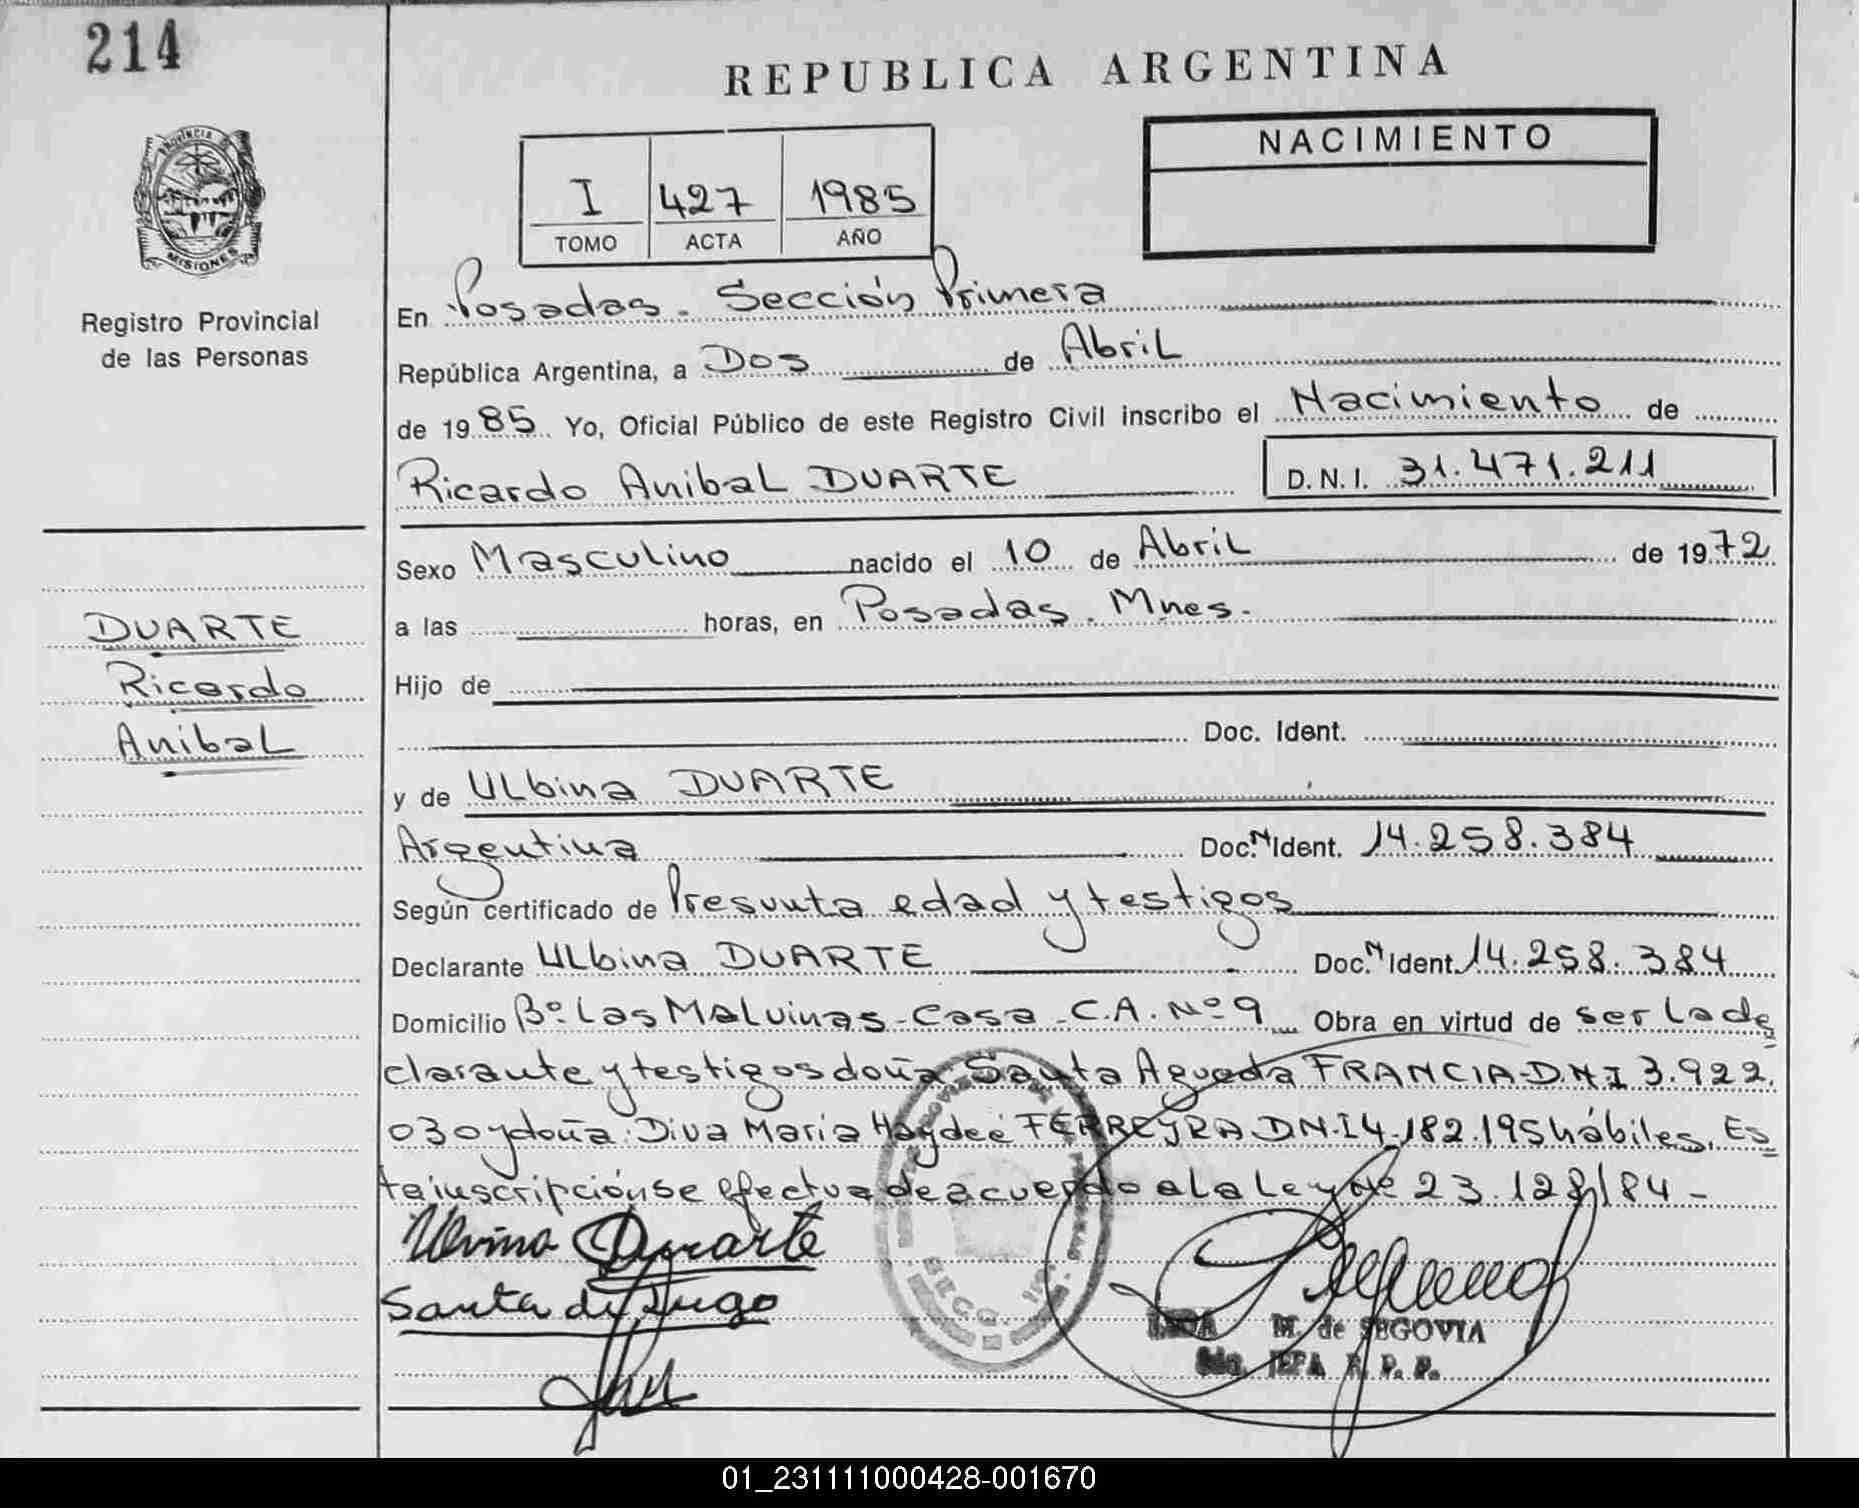 214
REPUBLICA ARGENTINA
PROVINCIA
MISIONES
Registro Provincial
de las Personas
I 427 1985
TOMO ACTA AÑO
NACIMIENTO
En Posadas. Sección Primera
República Argentina, a Dos de Abril
de 1985 Yo, Oficial Público de este Registro Civil inscribo el Nacimiento de
Ricardo Anibal DUARTE D.N.I. 31.471.211
Sexo Masculino nacido el 10 de Abril de 1972
DUARTE
Ricardo
Anibal
a las horas, en Posadas. Mnes.
Hijo de
Doc. Ident.
y de ULbina DUARTE
Argentina Doc. N Ident. 14.258.384
Según certificado de Presunta edad y testigos
Declarante ULbina DUARTE Doc. N Ident. 14.258.384
Domicilio Bº Las Malvinas - Casa - C.A. Nº 9 Obra en virtud de ser la de
clarante y testigos doña Santa Agueda FRANCIA D.N.I 3.922.
030 y doña Diva Maria Haydeé FERREYRA D.N.I 4.182.195 hábiles. Es
ta inscripción se efectua de acuerdo a la Ley Nº 23.128/84 -
Ulvina Duarte
Santa de Lugo
M. de SEGOVIA
JEFA R. P. P.
01_231111000428-001670